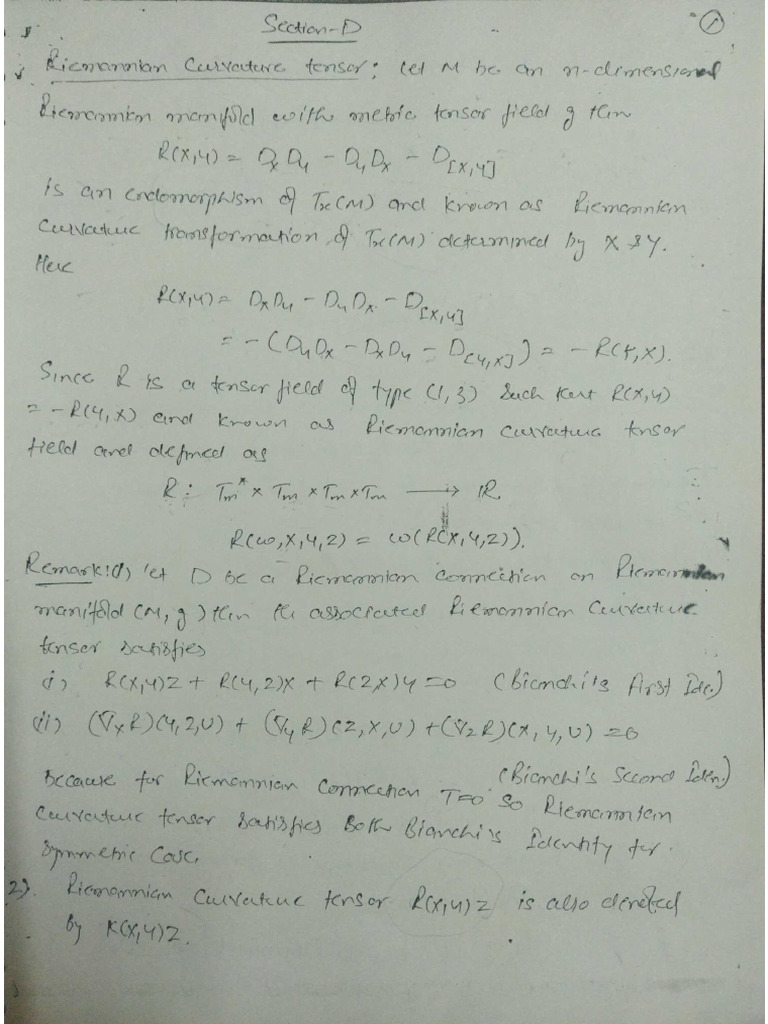 Section-D
①
Riemannian Curvature tensor: let M be an n-dimensional
Riemannian manifold with metric tensor field g then
R(X,Y) = D_X D_Y - D_Y D_X - D_[X,Y]
is an endomorphism of Tx(M) and known as Riemannian
Curvature transformation of Tx(M) determined by X & Y.
Here
R(X,Y) = D_X D_Y - D_Y D_X - D_[X,Y]
= - (D_Y D_X - D_X D_Y - D_[Y,X]) = - R(Y,X).
Since R is a tensor field of type (1,3) such that R(X,Y)
= -R(Y,X) and known as Riemannian curvature tensor
field and defined as
R: Tm* × Tm × Tm × Tm → R
R(ω,X,Y,Z) = ω(R(X,Y,Z)).
Remark:(1) let D be a Riemannian connection on Riemannian
manifold (M,g) then the associated Riemannian Curvature
tensor satisfies
i) R(X,Y)Z + R(Y,Z)X + R(Z,X)Y = 0 (Bianchi's first Iden.)
ii) (∇_X R)(Y,Z,U) + (∇_Y R)(Z,X,U) + (∇_Z R)(X,Y,U) = 0
(Bianchi's Second Iden.)
because for Riemannian Connection T=0 so Riemannian
Curvature tensor satisfies Both Bianchi's Identity for
Symmetric Case.
2). Riemannian Curvature tensor R(X,Y)Z is also denoted
by K(X,Y)Z.